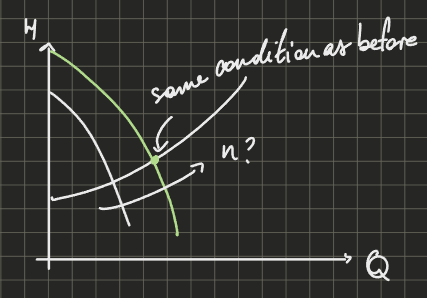 H
same condition as before
n?
Q